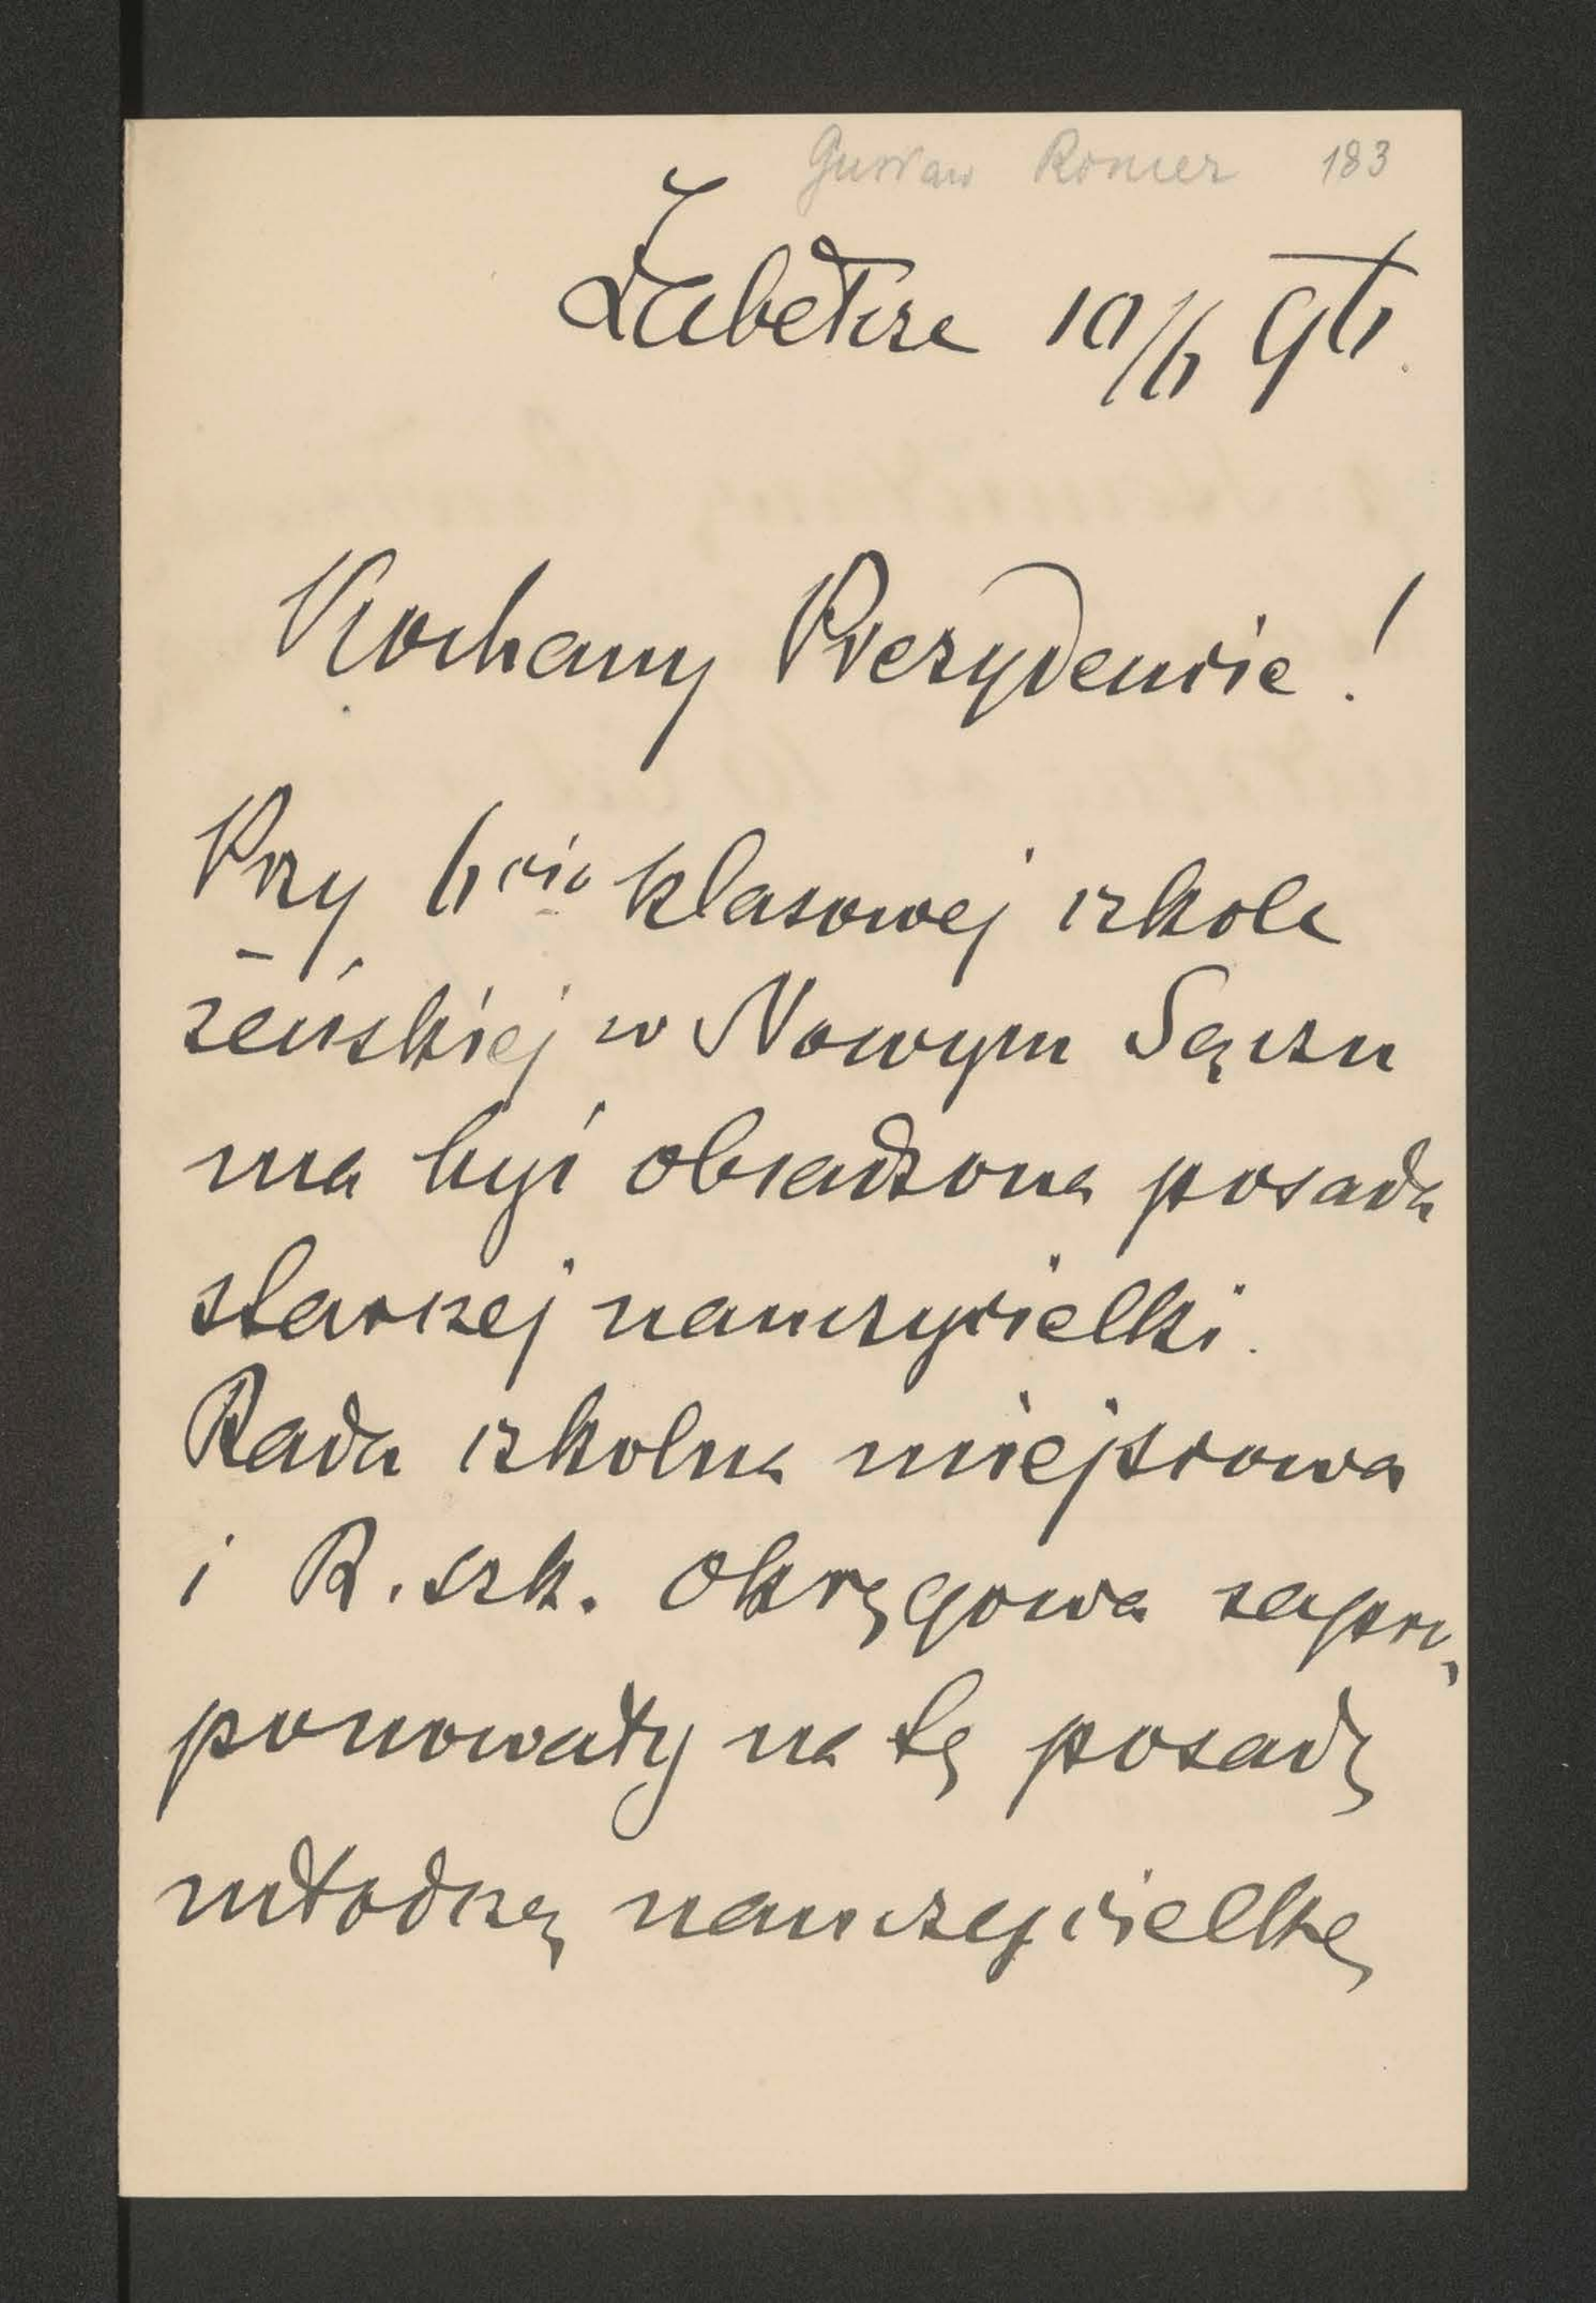 Gustaw Romer 183
Żabełcze 10/6 96.
Kochany Prezydencie!
Przy 6cio klasowej szkole
żeńskiej w Nowym Sączu
ma być obsadzona posada
starszej nauczycielki.
Rada szkolna miejscowa
i R. szk. okręgowa zapro,
ponowały na tę posadę
młodszą nauczycielkę